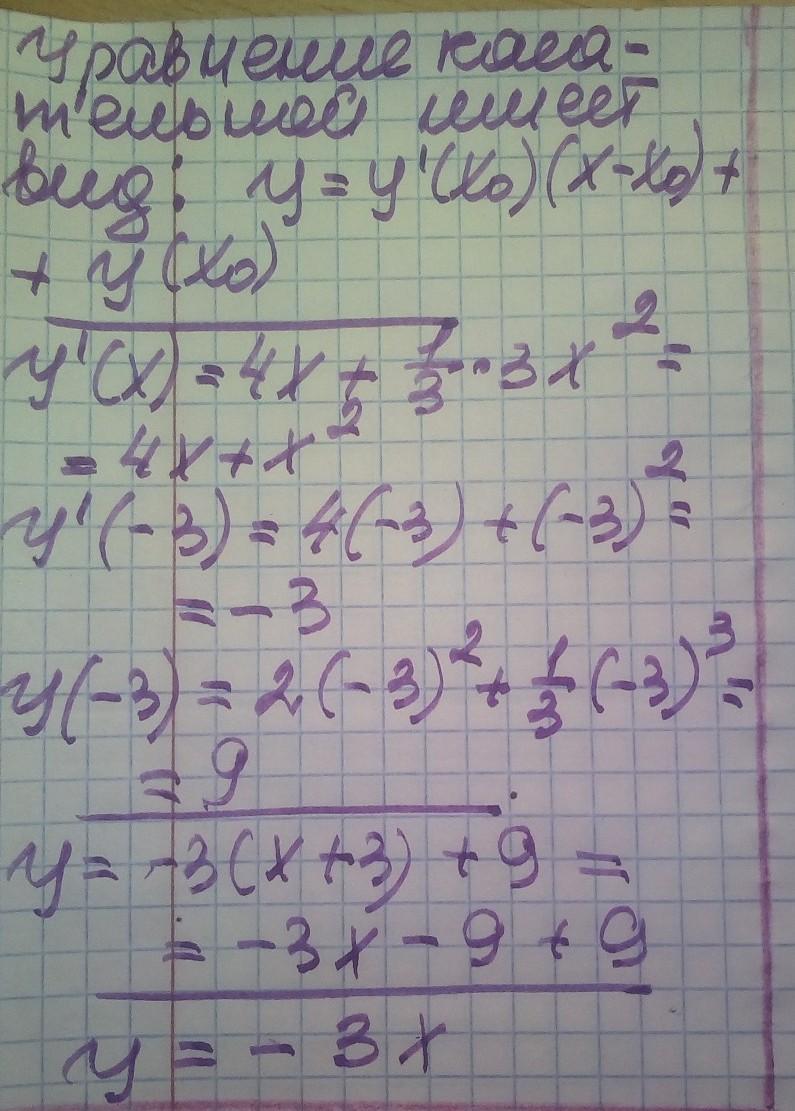 Уравнение каса-
тельной имеет
вид: y = y'(x₀)(x-x₀) +
+ y(x₀)
y'(x) = 4x + 1/3 · 3x² =
= 4x + x²
y'(-3) = 4(-3) + (-3)² =
= -3
y(-3) = 2(-3)² + 1/3 (-3)³ =
= 9
y = -3(x+3) + 9 =
= -3x - 9 + 9
y = -3x